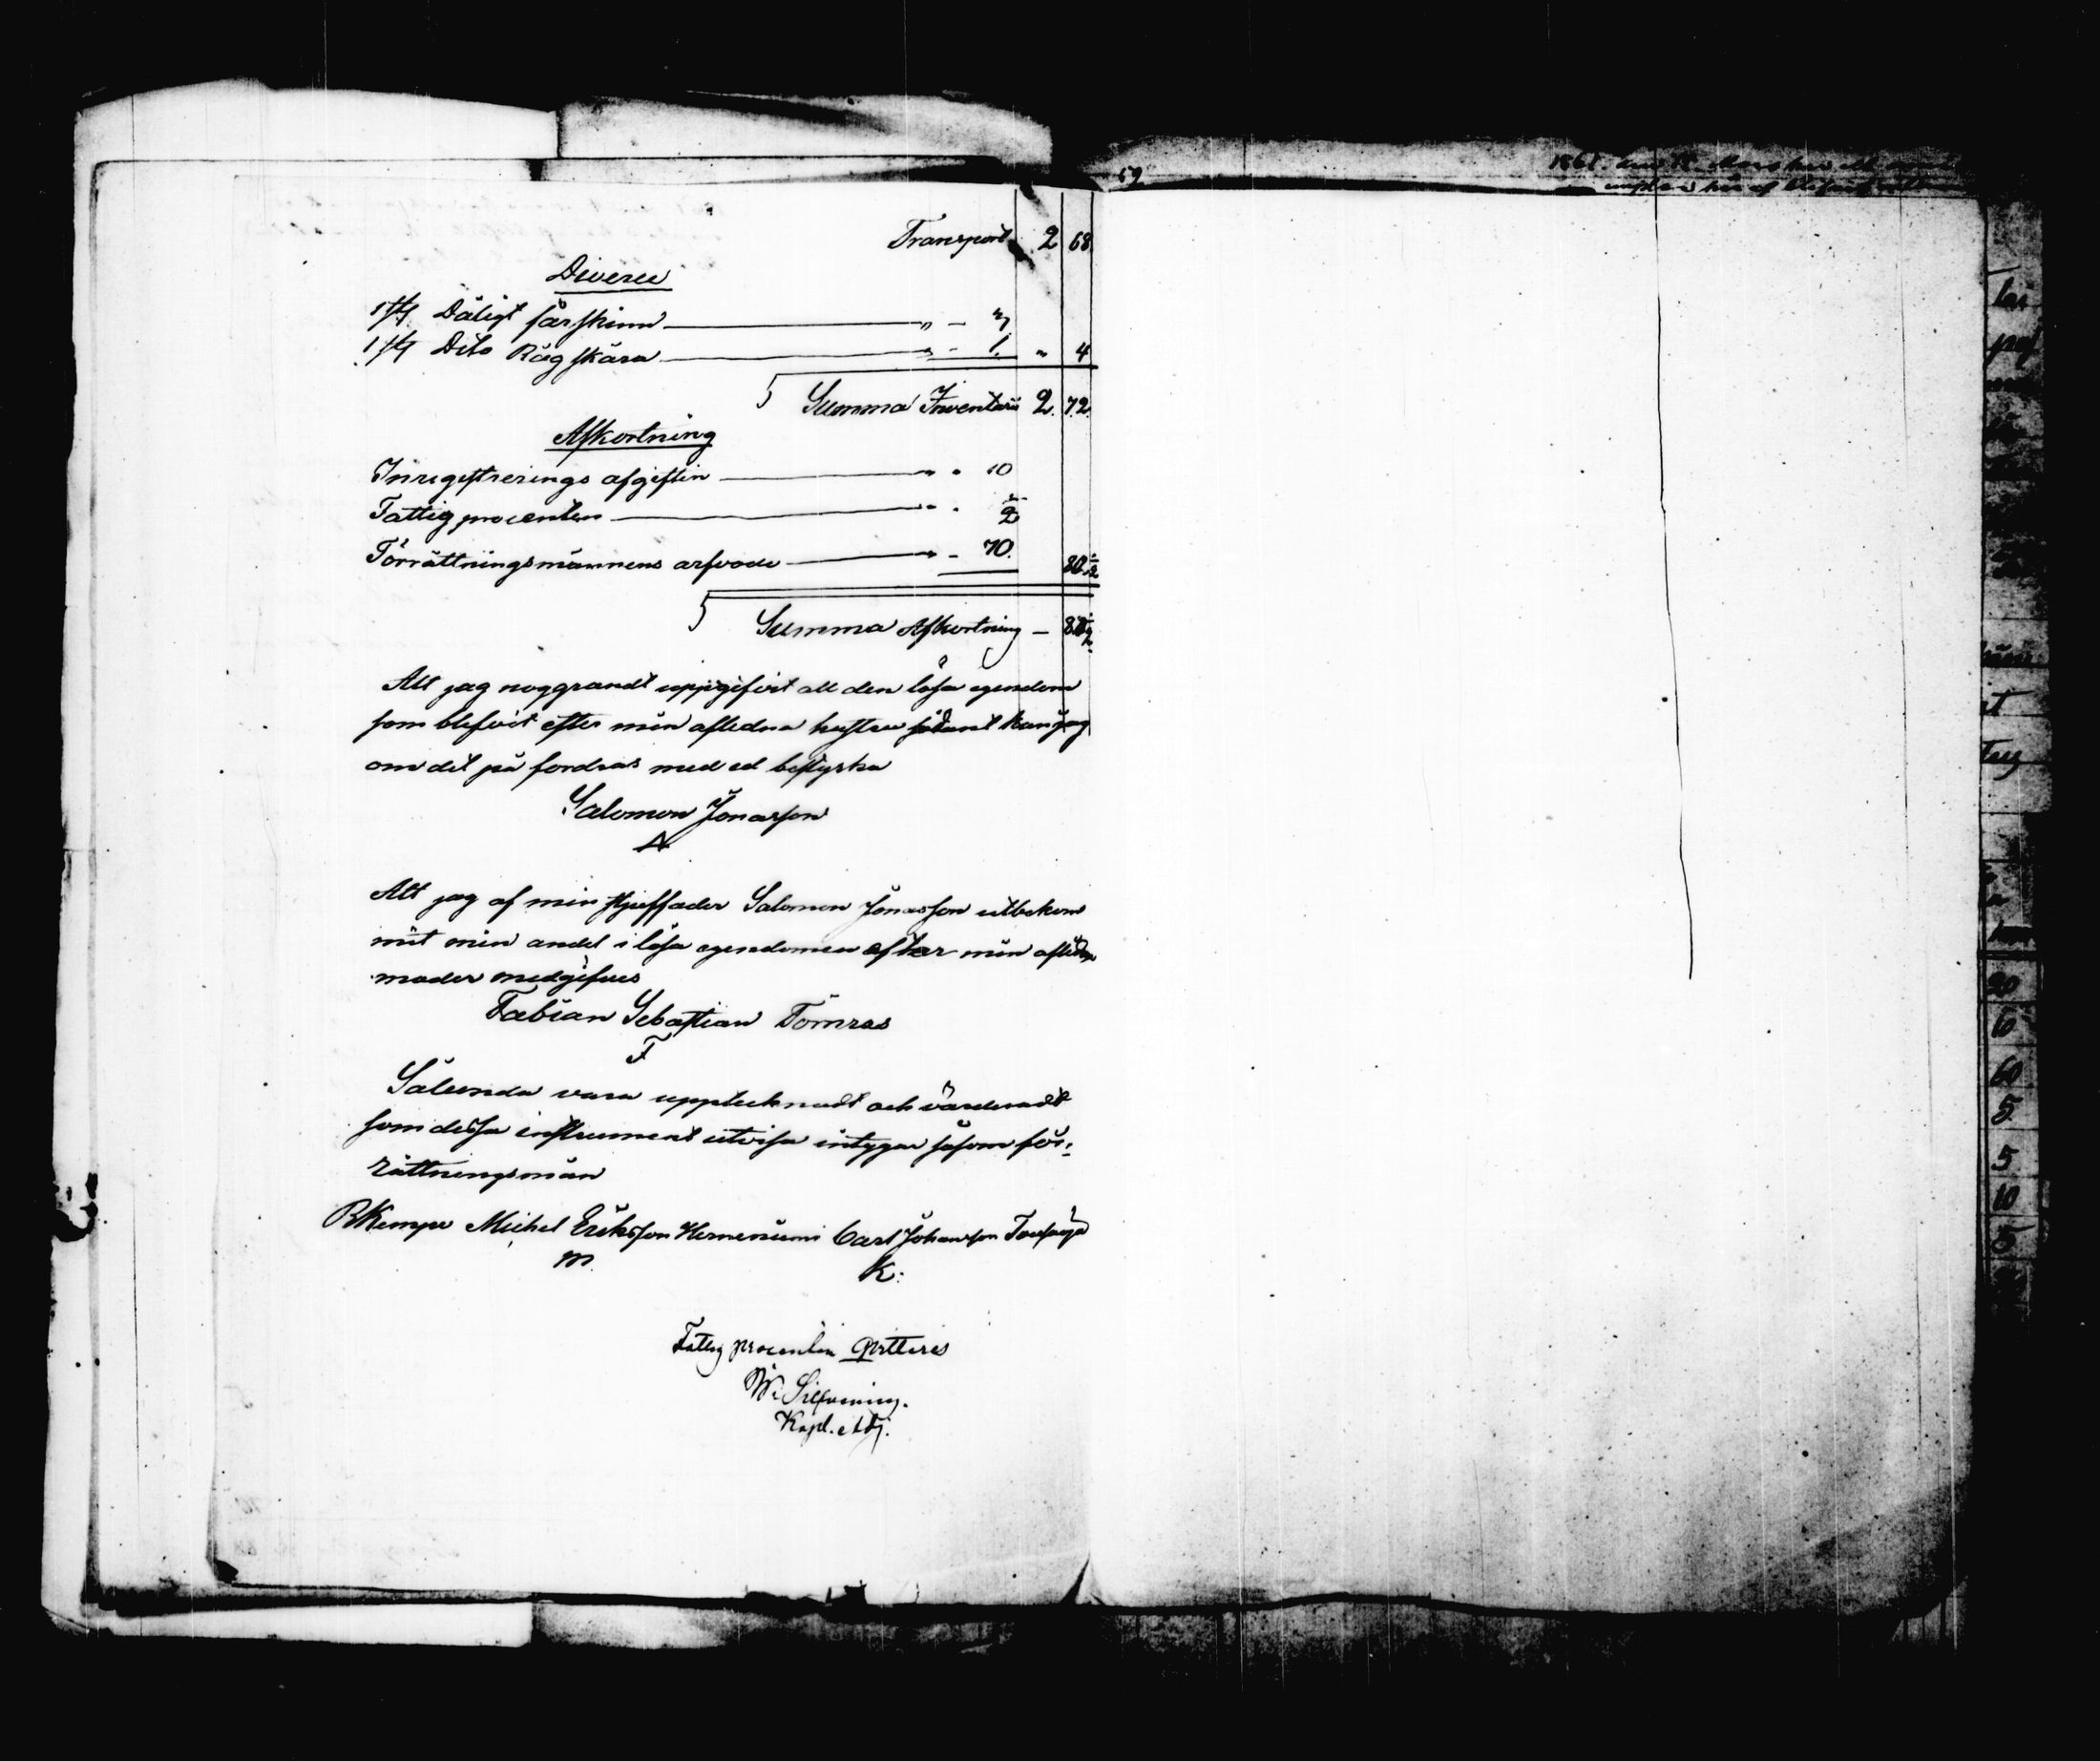 57
Transport 2 68
Diverse
1 st Dåligt fårskinn " - 3
1 st Dito Rågskära " - 1. " 4
Summa Inventarii 2. 72
Afkortning
Inregistrerings afgiften " " 10
Fattigprocenten " " ½
Förrättningsmännens arfvode " - 70. 80.½
Summa Afkortning — 80½
Att jag noggrandt uppgifvit all den lösa egendom
som blefvit efter min aflidna hustru sådant kan jag
om det på fordras med ed bestyrka
Salomon Jonasson
Att jag af min stjuffader Salomon Jonasson utbekom
mit min andel i lösa egendomen efter min aflidna
moder medgifves
Fabian Sebastian Tömras
F
Sålunda vara upptecknadt och värderadt
som dessa instrument utvisa intygar såsom för:
rättningsmän
Kempe Michel Eriksson Hemerniemi Carl Johansson
m. K:
Fattig procenten qvitteras
W. Silfvening.
Kapl. Adj.
1861.